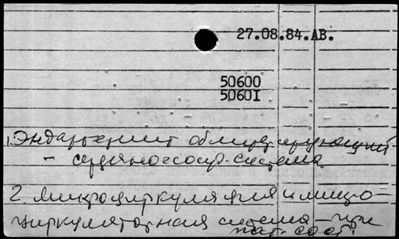 27.08.84.АВ.
50600
50601
1. Эндартериит облитерирующий
– сердечнососуд. система
2. микроциркуляция и микро-
циркуляторная система – при
пат. сост.